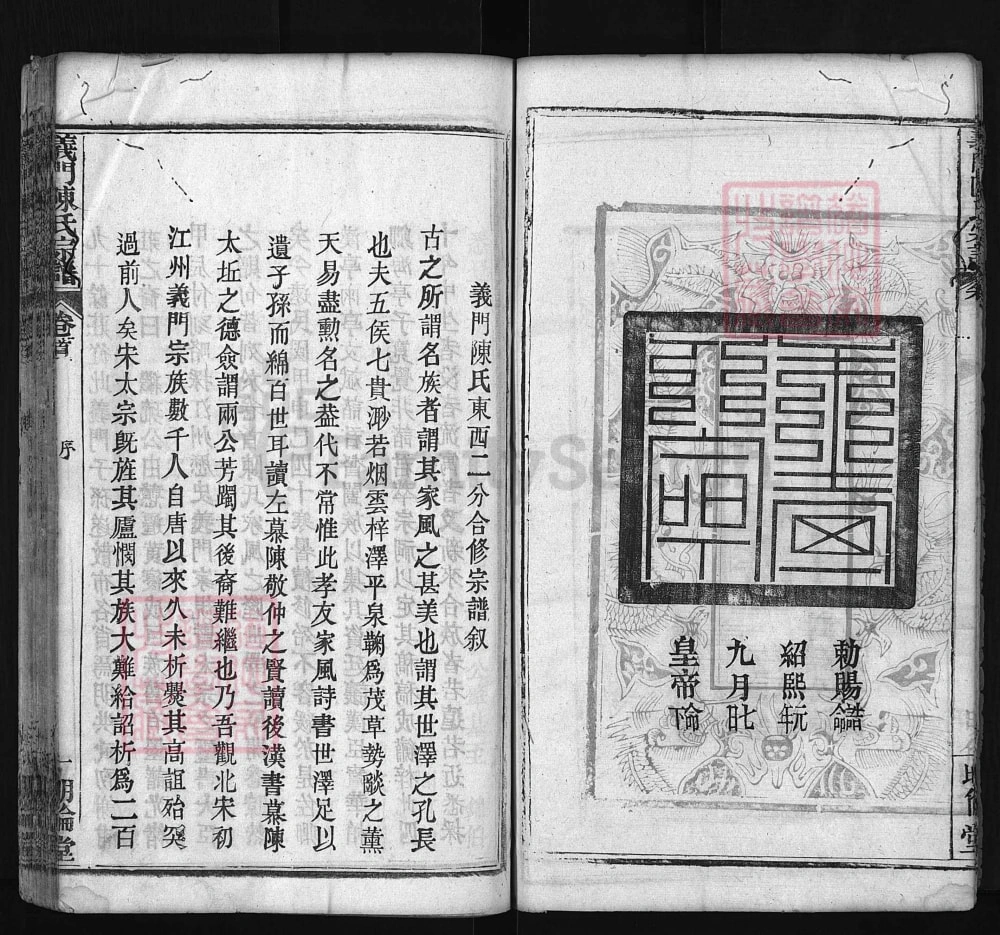 勅賜
紹熙
九月
皇帝
義門陳氏東西二分合修宗譜叙
古之所謂名族者謂其家風之甚美也謂其世澤之孔長
也夫五侯七貴渺若烟雲梓澤平泉鞠爲茂草勢燄之薰
天易盡勲名之葢代不常惟此孝友家風詩書世澤足以
遺子孫而綿百世耳讀左慕陳敬仲之賢讀後漢書慕陳
太坵之德僉謂兩公芳躅其後裔難繼也乃吾觀北宋初
江州義門宗族數千人自唐以來久未析爨其高誼殆突
過前人矣宋太宗旣旌其廬憫其族大難給詔析爲二百
義門陳氏宗譜
卷首
序
一
明倫堂